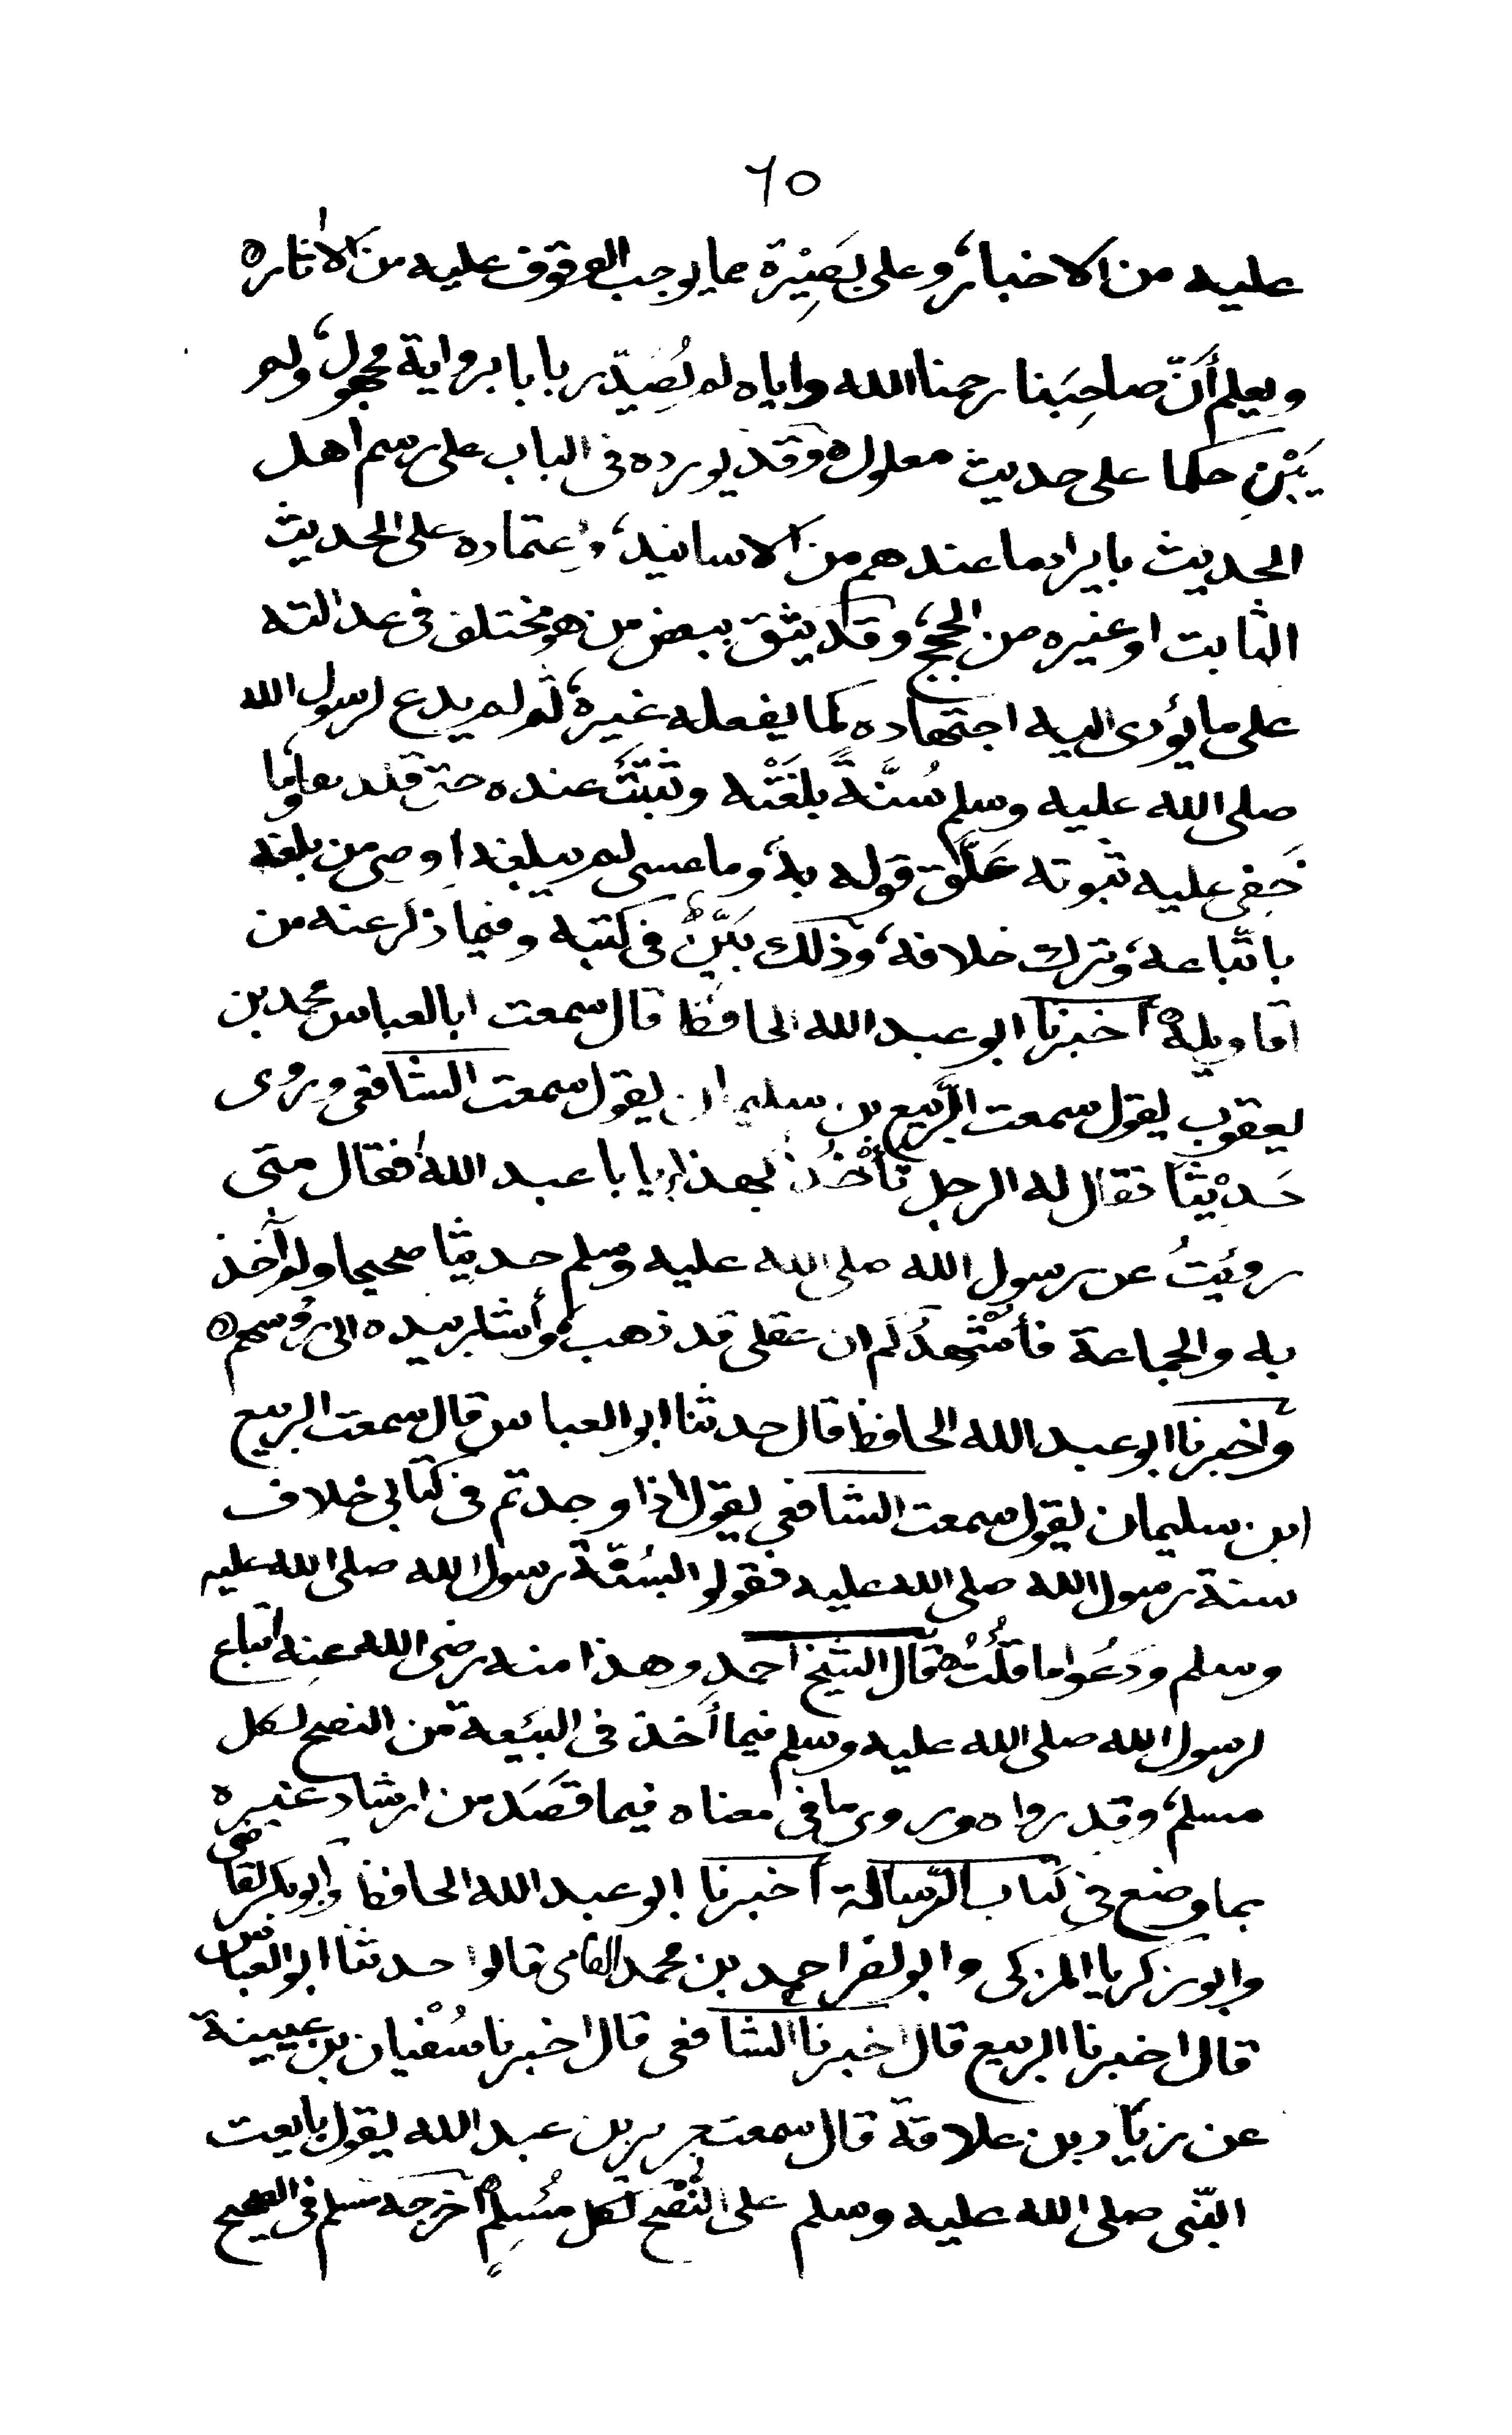 ٦٥
عليه من الاخبار، وعلى بَصِيْرة مما يوجب الوقوف عليه من الاٰثاره
ويعلم أنّ صاحِبَنا رحمنا الله واياه لم يُصَدّر بابا برواية مجهول، ولم
يَبْنِ حكما على حديث معلول ه وَقد يورده في الباب على رسم اهل
الحديث بايراد ما عندهم من الاسانيد، واِعتماده على الحديث
الثابت او غيره من الحجج، وقد يثق ببعض من هو مختلف في عدالته
على ما يؤدى اليه اجتهاده كما يفعله غيره، ثم لم يدع لرسول الله
صلى الله عليه وسلم سُنَّةً بلَغَتْه وثبتَتْ عنده حتى قلدها، وما
خَفِى عليه ثبوته عَلَّق قوله به، وما عسى لم يبلغه اوصى من بلغه
باتّباعه، وترك خلافه، وذلك بَيِّنٌ في كتبه وفيما ذُكر عنه من
اقاويله ه أخبرنا ابو عبد الله الحافظ قال سمعت ابا العباس محمد بن
يعقوب يقول سمعت الرَّبيع بن سليمان يقول سمعت الشافعى وروى
حَدْيثا فقال له الرجل تأْخُذ بهذا يا با عبد الله فقال متى
رويْتُ عن رسول الله صلى الله عليه وسلم حديثا صحيحا ولم آخذ
به والجماعة فأُشْهدُكم ان عقلى قد ذهب، وأشار بيده الى رؤسهم ه
وأخبرنا ابو عبد الله الحافظ قال حدثنا ابو العباس قال سمعت الربيع
ابن سليمان يقول سمعت الشافعي يقول اذا وجدتم في كتابى خلاف
سنة رسول الله صلى الله عليه فقولوا بسُنّة رسول الله صلى الله عليه
وسلم ودَعُوا ما قلْتُ ه قال الشيخ احمد وهذا منه رضى الله عنه اتباع
لرسول الله صلى الله عليه وسلم فيما أخذ في البَيْعة من النصح لكل
مسلم، وقد رواه وروى ما في معناه فيما قصَدَ من ارشاد غيره
بما وضع في كتاب الرّسالة أخبرنا ابو عبد الله الحافظ وأبو بكر القاضى
وابو زكريا المزكى وابو نصر احمد بن محمد القامى قالوا حدثنا ابو العباس
قال اخبرنا الربيع قال اخبرنا الشافعى قال اخبرنا سُفْيان بن عيينة
عن زيَاد بن علاقة قال سمعت جرير بن عبد الله يقول بايعت
النّبى صلى الله عليه وسلم على النُّصْح لكل مُسْلِمٍ ه أخرجه مسلم في الصحيح